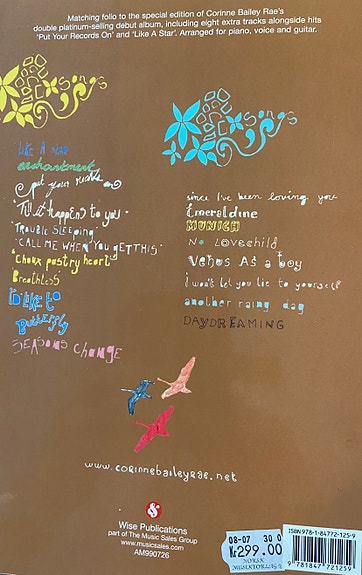 Matching folio to the special edition of Corinne Bailey Rae's
double platinum-selling debut album, including eight extra tracks alongside hits
'Put Your Records On' and 'Like A Star'. Arranged for piano, voice and guitar.
Like A star
enchantment
put your records on
'Till it happens to you.
'TROUBLE SLEEPING'
'CALL ME WHEN YOU GET THIS'
'choux pastry heart'
Breathless'
I'D LIKE to
Butterfly
SEASONS CHANGE
since I've been loving you
Emeraldine
MUNICH
No Lovechild
Venus As a boy
I won't let you lie to yourself
another rainy day
DAYDREAMING
www.corinnebaileyrae.net
Wise Publications
part of The Music Sales Group
www.musicsales.com
AM990726
08-07 30 0
Kr299.00
NORSK
ISBN 978-1-84772-125-9
9 781847 721259